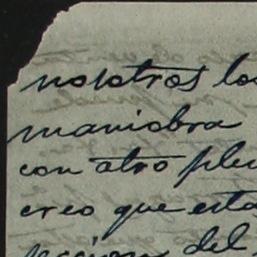 nosotros lo
maniobra
con otro ple
creo que esta
del